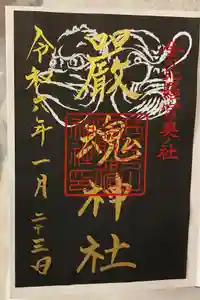 奥ノ社
嚴魂神社
令和六年一月二十三日